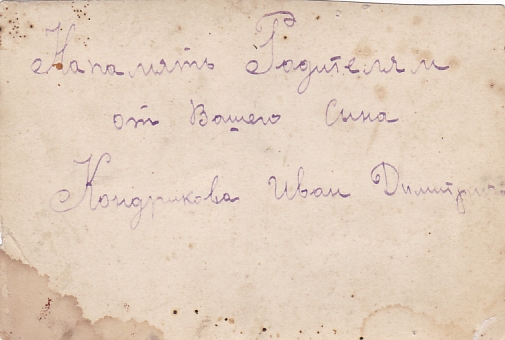 На память Родителям
от Вашего Сина
Кондрикова Иван